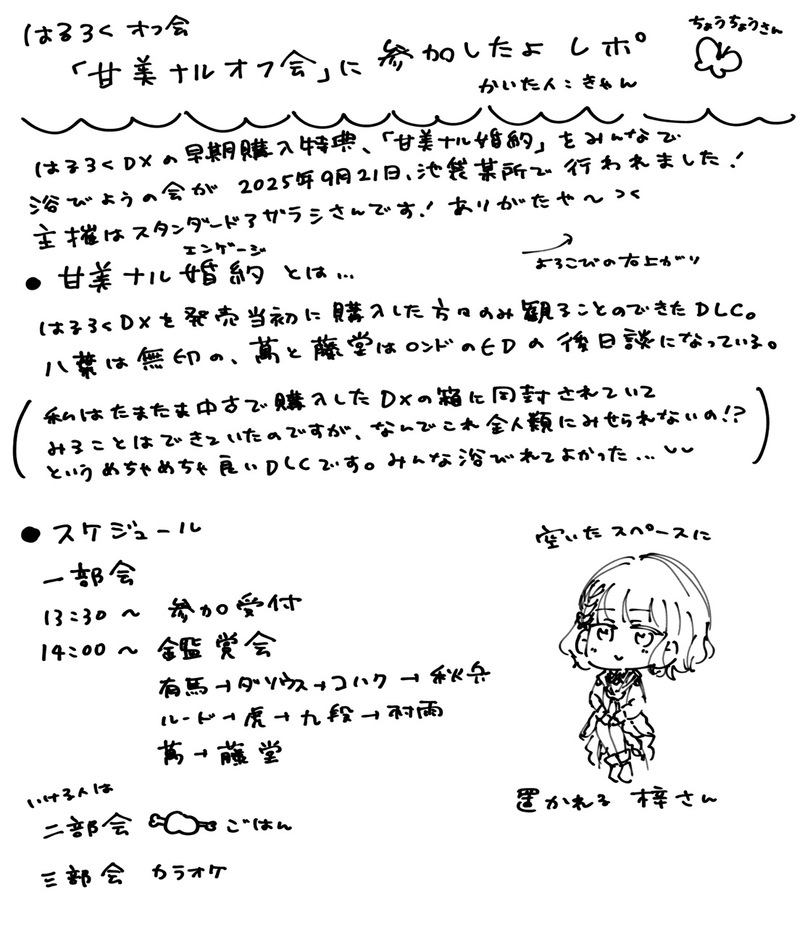 はるろく オフ会
「甘美ナルオフ会」に 参加したよ レポ
ちょうちょうさん
かいた人：きゃん
はるろくDXの早期購入特典、「甘美ナル婚約」をみんなで
浴びようの会が 2025年9月21日、池袋某所で 行われました！
主催はスタンダードアザラシさんです！ ありがたや〜
よろこびの右上がり
エンゲージ
● 甘美ナル婚約 とは…
はるろくDXを発売当初に購入した方々のみ観ることのできたDLC。
八葉は無印の、萬と藤堂はロンドのEDの後日談になっている。
私はたまたま中古で購入したDXの箱に同封されていて
みることはできていたのですが、なんでこれ全人類にみせられないの!?
というめちゃめちゃ良いDLCです。みんな浴びれてよかった…
● スケジュール
一部会
13:30〜 参加受付
14:00〜 鑑賞会
有馬→ダリウス→コハク→秋兵
ルード→虎→九段→村雨
萬→藤堂
いける人は
二部会 ごはん
三部会 カラオケ
空いたスペースに
置かれる 梓さん